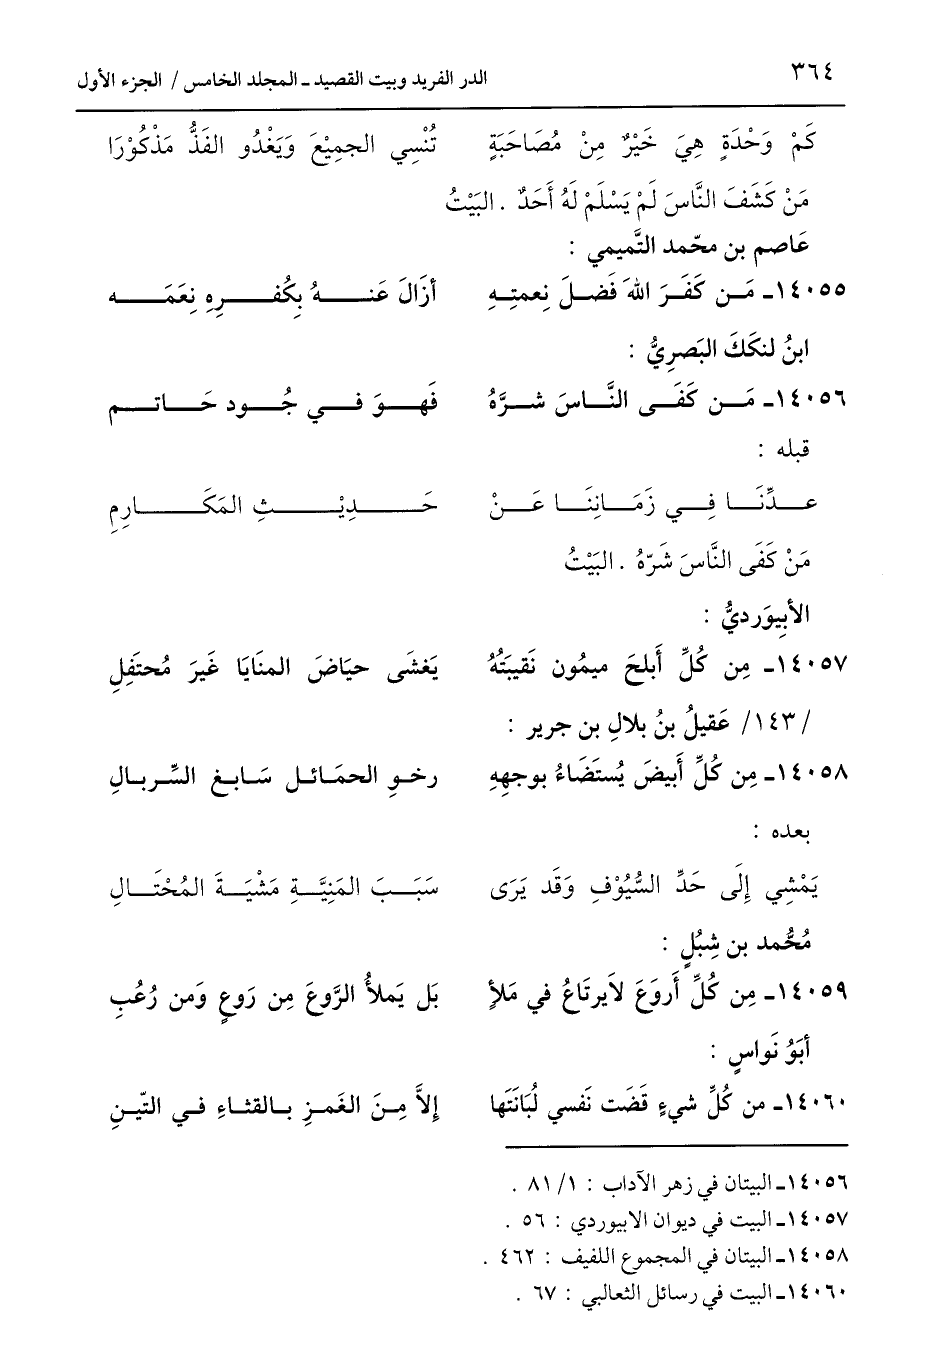 ٣٦٤ الدر الفريد وبيت القصيد ـ المجلد الخامس / الجزء الأول
كَمْ وَحْدَةٍ هِيَ خَيْرٌ مِنْ مُصَاحَبَةٍ تُنْسِي الجمِيْعَ وَيَغْدُو الفَذُّ مَذْكُوْرَا
مَنْ كَشَفَ النَّاسَ لَمْ يَسْلَمْ لَهُ أَحَدٌ . البَيْتُ
عَاصم بن محمّد التَّميمي :
١٤٠٥٥ـ مَن كَفَرَ اللهَ فَضلَ نِعمتِهِ أزَالَ عَنهُ بِكُفرِهِ نِعَمَه
ابنُ لنكَكَ البَصرِيُّ :
١٤٠٥٦ـ مَن كَفَى النَّاسَ شرَّهُ فَهوَ في جُود حَاتم
قبله :
عدِّنَا فِي زَمَانِنَا عَنْ حَدِيْثِ المَكَارِمِ
مَنْ كَفَى النَّاسَ شَرّهُ . البَيْتُ
الأبِيوَرديُّ :
١٤٠٥٧ـ مِن كُلِّ أَبلجَ ميمُون نَقيبَتُهُ يَغشَى حيَاضَ المنَايَا غَيرَ مُحتَفلِ
/١٤٣/ عَقيلُ بنُ بلالِ بن جرير :
١٤٠٥٨ـ مِن كُلِّ أَبيضَ يُستَضَاءُ بوجههِ رخوِ الحمَائل سَابغ السِّربالِ
بعده :
يَمْشِي إِلَى حَدِّ السُّيُوْفِ وَقَد يَرَى سَبَبَ المَنِيَّةِ مَشْيَةَ المُحْتَالِ
مُحُّمد بن شِبُلٍ :
١٤٠٥٩ـ مِن كُلِّ أَروَعَ لاَيرتَاعُ في مَلأٍ بَل يَملأُ الرَّوعَ مِن رَوعٍ وَمن رُعُبِ
أبَوُ نَواسٍ :
١٤٠٦٠ـ من كُلِّ شيءٍ قَضَت نَفسي لُبَانَتَها إلاَّ مِنَ الغَمزِ بالقثاءِ في التّينِ
١٤٠٥٦ـ البيتان في زهر الآداب : ١/ ٨١ .
١٤٠٥٧ـ البيت في ديوان الابيوردي : ٥٦ .
١٤٠٥٨ـ البيتان في المجموع اللفيف : ٤٦٢ .
١٤٠٦٠ـ البيت في رسائل الثعالبي : ٦٧ .